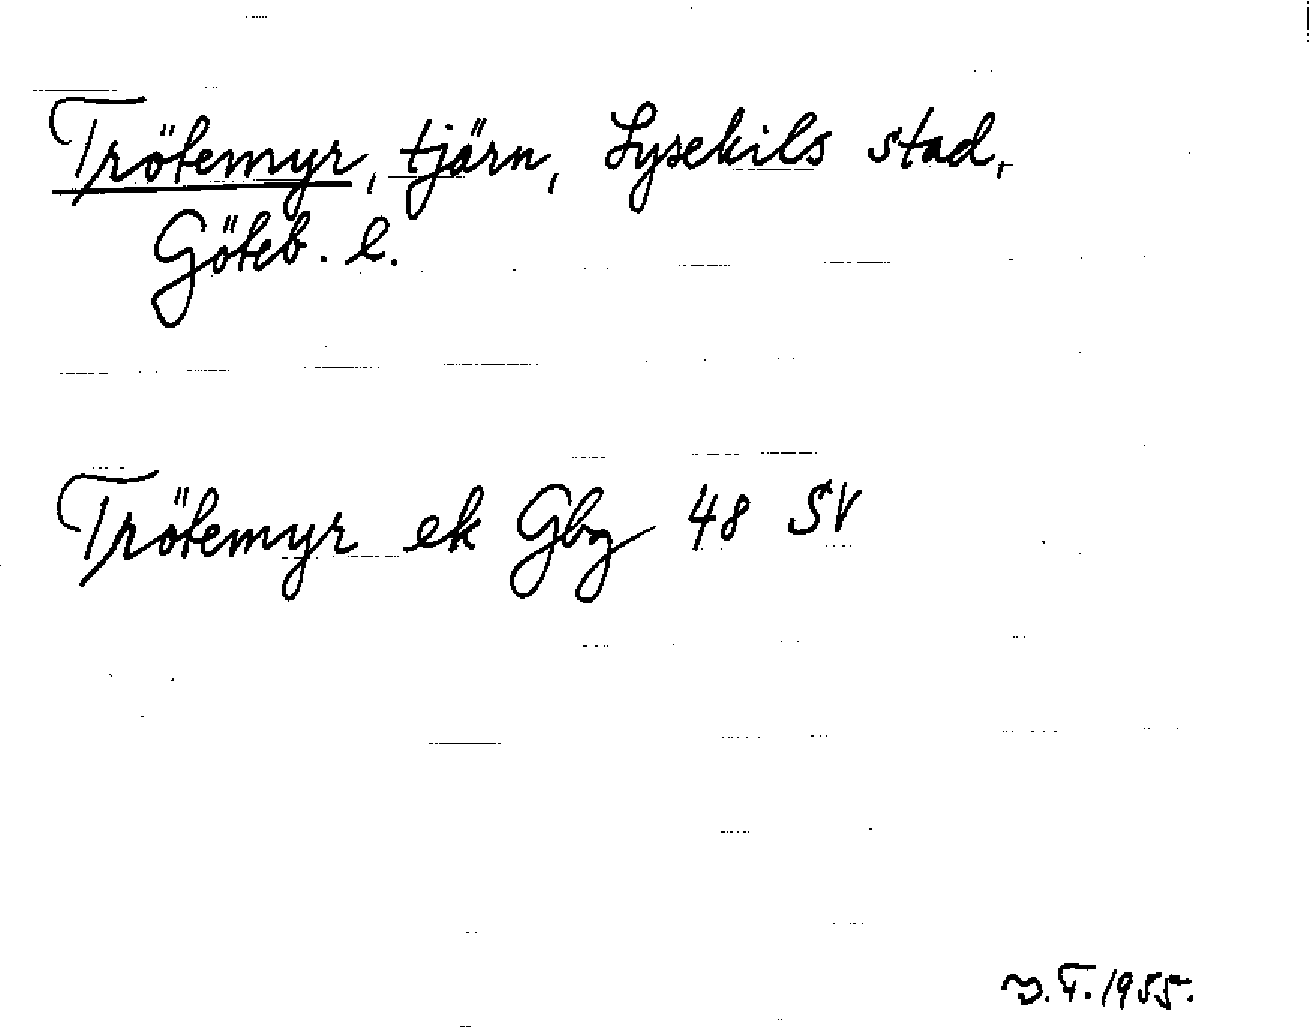 Trötemyr, tjärn, Lysekils stad,
Göteb. l.
Trötemyr ek Gbg 48 SV
T. 1955.